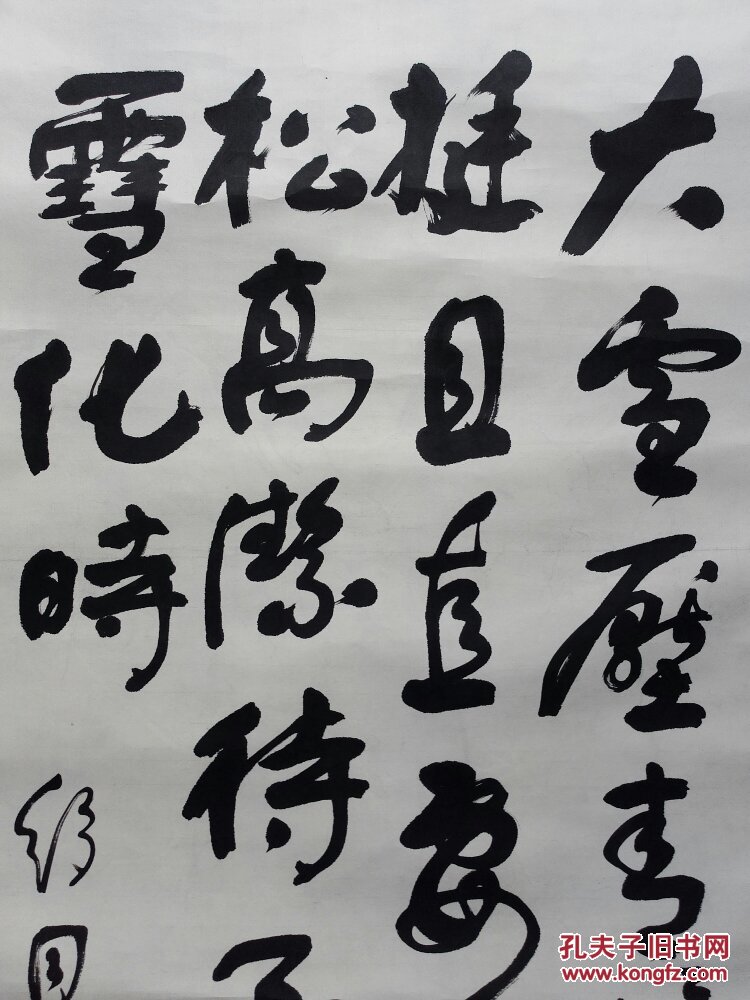 大雪壓青
挺且直要
松高潔待
雪化時
孔夫子旧书网
www.kongfz.com